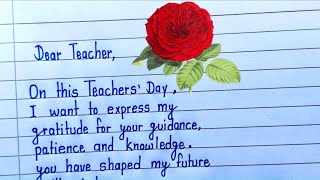 Dear Teacher,
On this Teachers' Day,
I want to express my
gratitude for your guidance,
patience and knowledge.
you have shaped my future